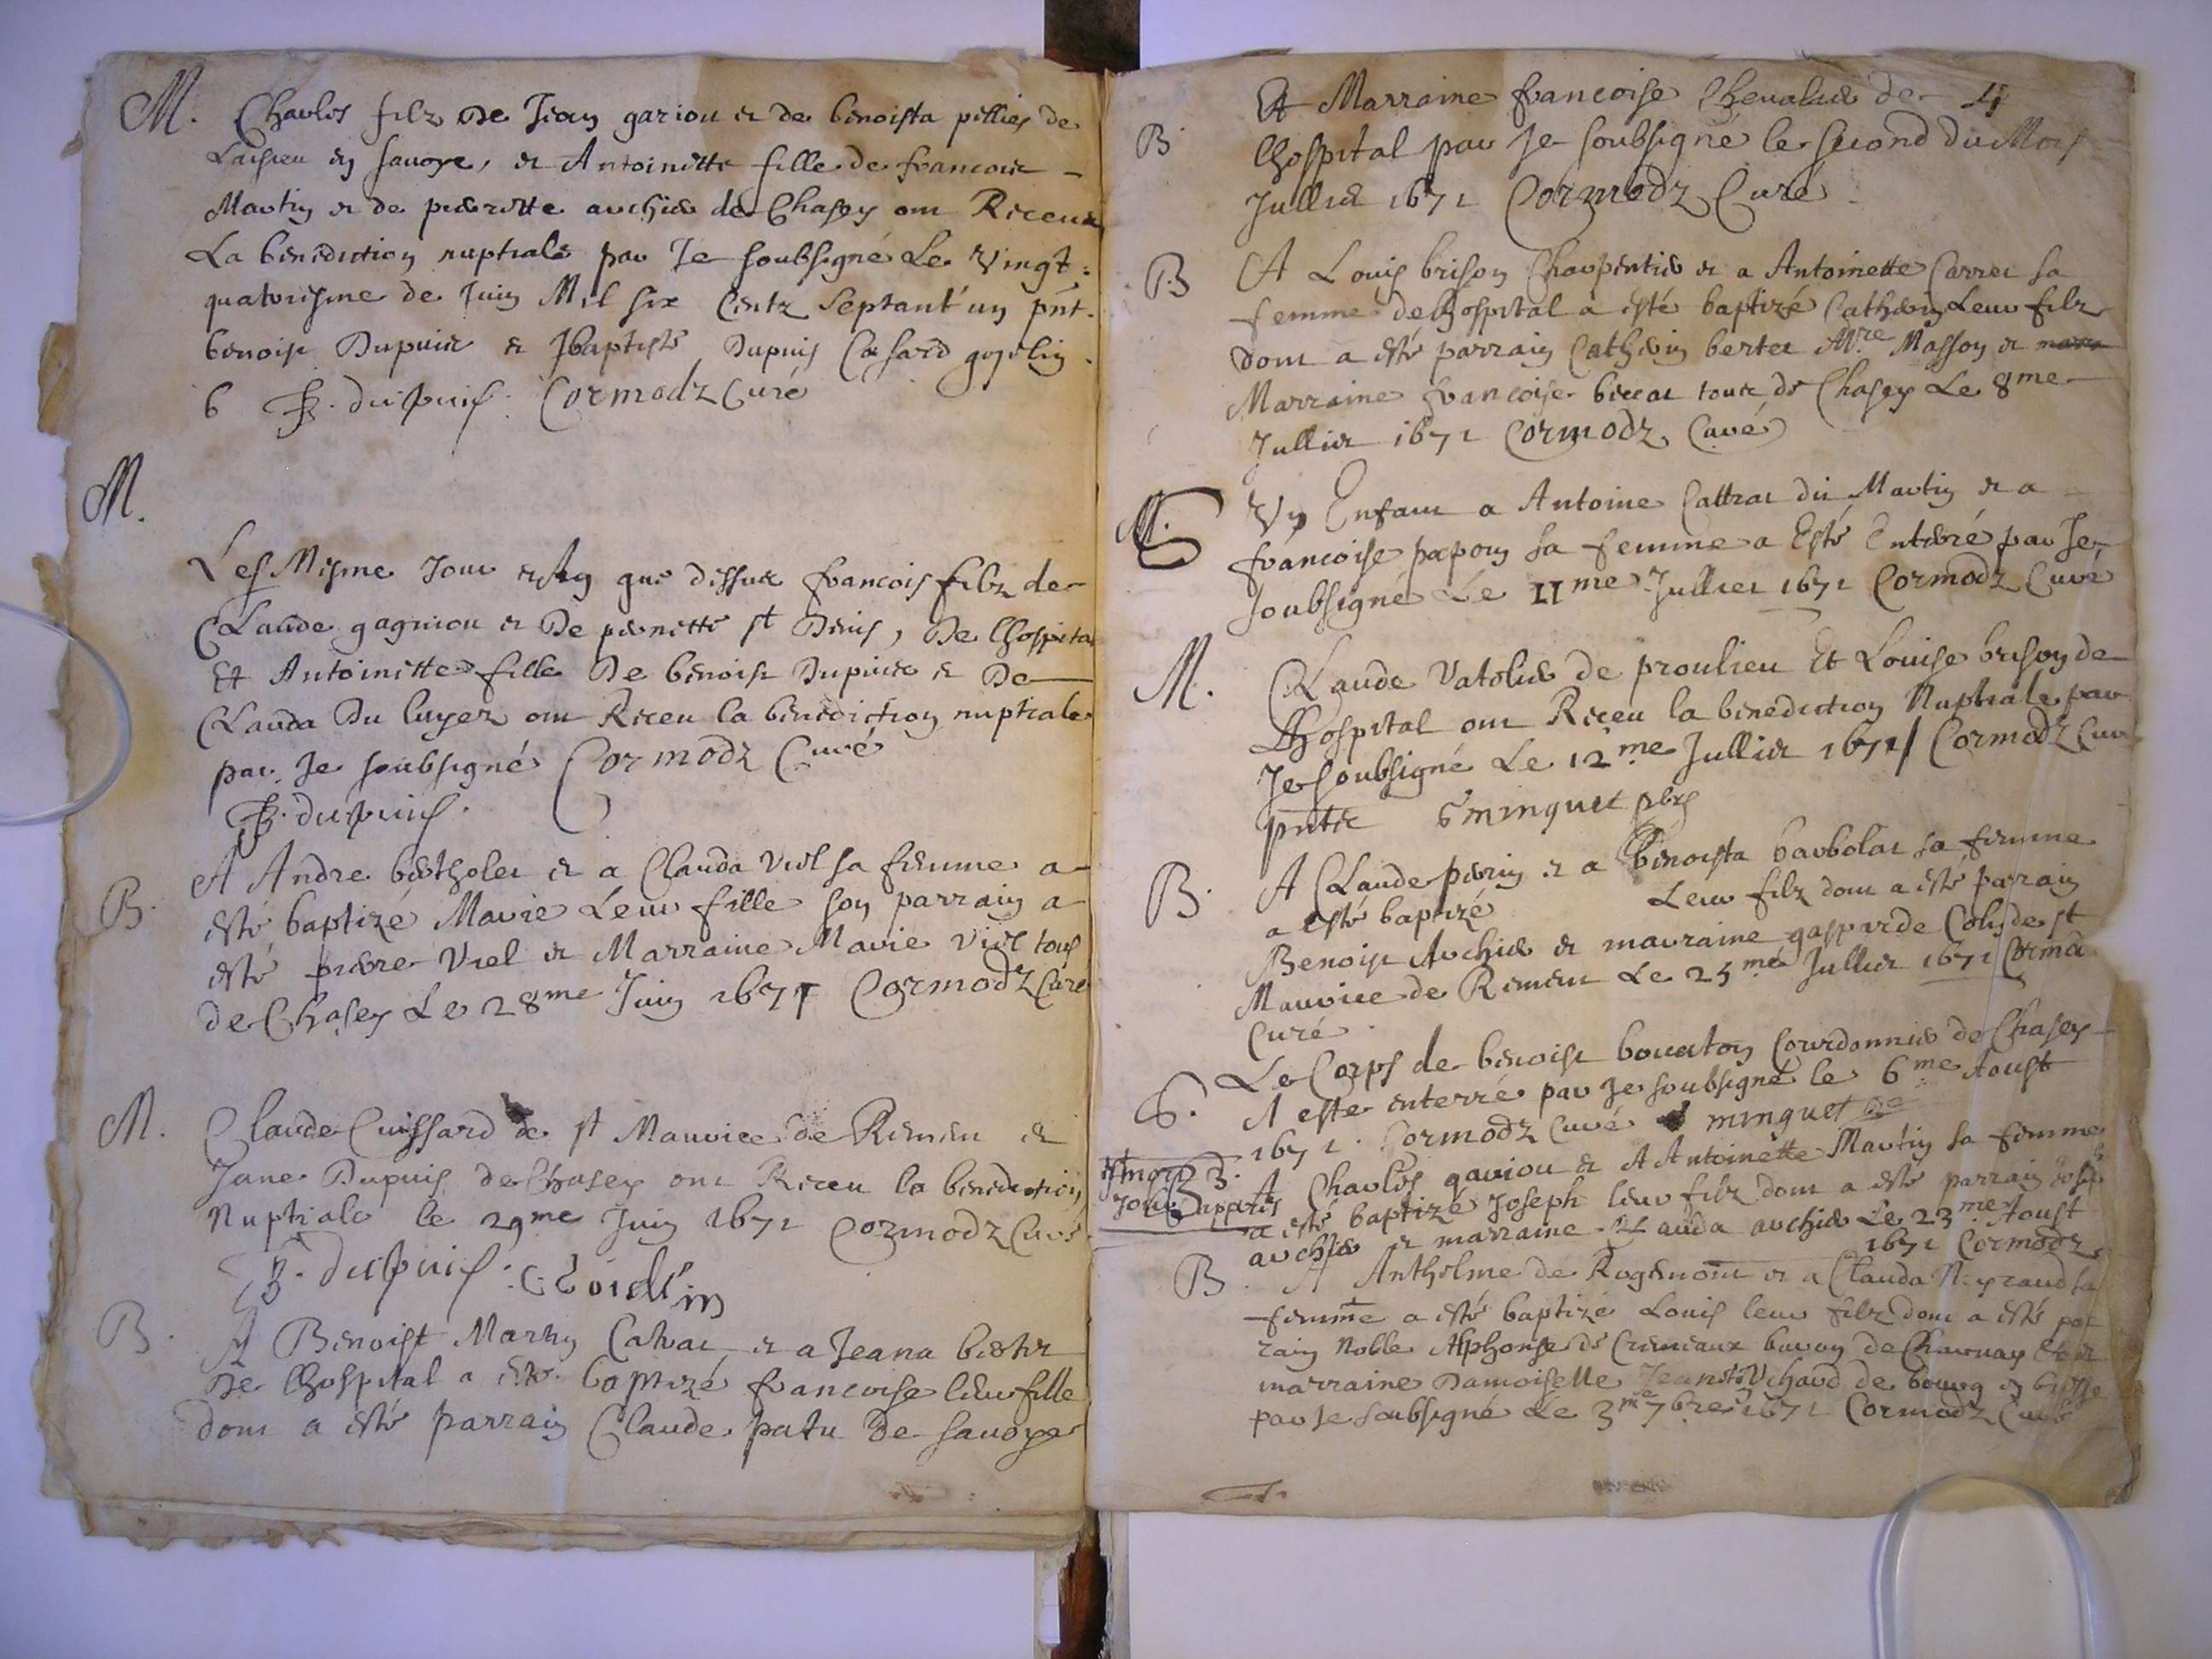 M. Charles filz De Jean gariou et de benoista pellier de
Laisieu en savoye, et Antoinette fille de francois
Martin et de pierrette archier de Chasey ont Receu
La benediction nuptiale par Je soubsigné Le Vingt
quatoriesme de Juin Mil six Centz Septant'un pnt.
benoist Dupuis et Jbaptiste Dupuis
b dupuis. Cormodz Curé
M.
Les Mesme Jour et an que dessus francois filz de
Claude gagniou et De pernette st Denis, De Lhospital
Et Antoinette fille De benoist Dupuis et De
Clauda Du luyer ont Receu la benediction nuptiale
par Je soubsigné Cormodz Curé
dupuis.
B. A Andre bertholet et a Clauda Viel sa femme a
esté baptizé Marie Leur fille son parrain a
esté pierre Viel et Marraine Marie Viel tous
de Chasey Le 28me Juin 1671 Cormodz Curé
M. Claude Cuissard de st Maurice de Remen et
Jane Dupuis de Chasey ont Receu la benediction
Nuptiale le 29me Juin 1671 Cormodz Curé
dupuis.
B. A Benoist Marin Calvat et a Jeana
De Lhospital a esté baptizé francoise leur fille
dont a esté parrain Claude patu De savoye
Et Marraine francoise Chevalier de 4
B Lhospital par Je soubsigné le second du Mois
Jullet 1671 Cormodz Curé
B A Louis brison Charpentier et a Antoinette Carret sa
femme de Lhospital a esté baptizé Catherin Leur filz
dont a esté parrain Catherin bertet Mre Masson et
Marraine francoise tout de Chasey Le 8me
Jullet 1671 Cormodz Curé
Un Enfant a Antoine Cattrat dit Martin et a
francoise papon sa femme a Esté Enterré par Je
soubsigné Le 11me Jullet 1671 Cormodz Curé
M. Claude Vatolier de proulieu Et Louise brison de
Lhospital ont Receu la benediction Nuptiale par
Je soubsigné Le 12me Jullet 1671 Cormodz Cur
pntz minguet pbre
B. A Claude perin et a benoista barbolat sa femme
a esté baptizé Leur filz dont a esté parrain
Benoist Archier et marraine gasparde de st
Maurice de Remen Le 25me Jullet 1671 Cormod
Curé
S. Le Corps de benoist bouveton Courdonnier de Chasey
A esté enterré par Je soubsigné le 6me Aoust
1671. Cormodz Curé minguet
B. A Charles gariou et A Antoinette Martin sa femme
a esté baptizé Joseph leur filz dont a esté parrain
archier et marraine Clauda archier Le 23me Aoust
1671 Cormodz
B. A Anthelme de Rogemont et a Clauda Neyraud sa
femme a esté baptizé Louis leur filz dont a esté par
rain Noble Alphonse de Cremeaux baron de et
marraine Damoiselle de bourg en bresse
par Je soubsigné Le 3me 7bre 1671 Cormodz Curé